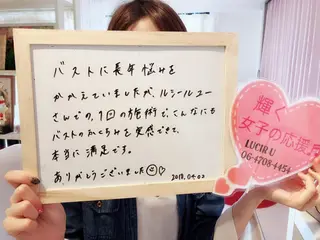 バストに長年悩みを
かかえていましたが、ルシールユー
さんでの、1回の施術でこんなにも
バストのふくらみを実感できて、
本当に満足です。
ありがとうございました
2018.04.02
輝く
女子の応援
LUCIR U
06-4708-4454